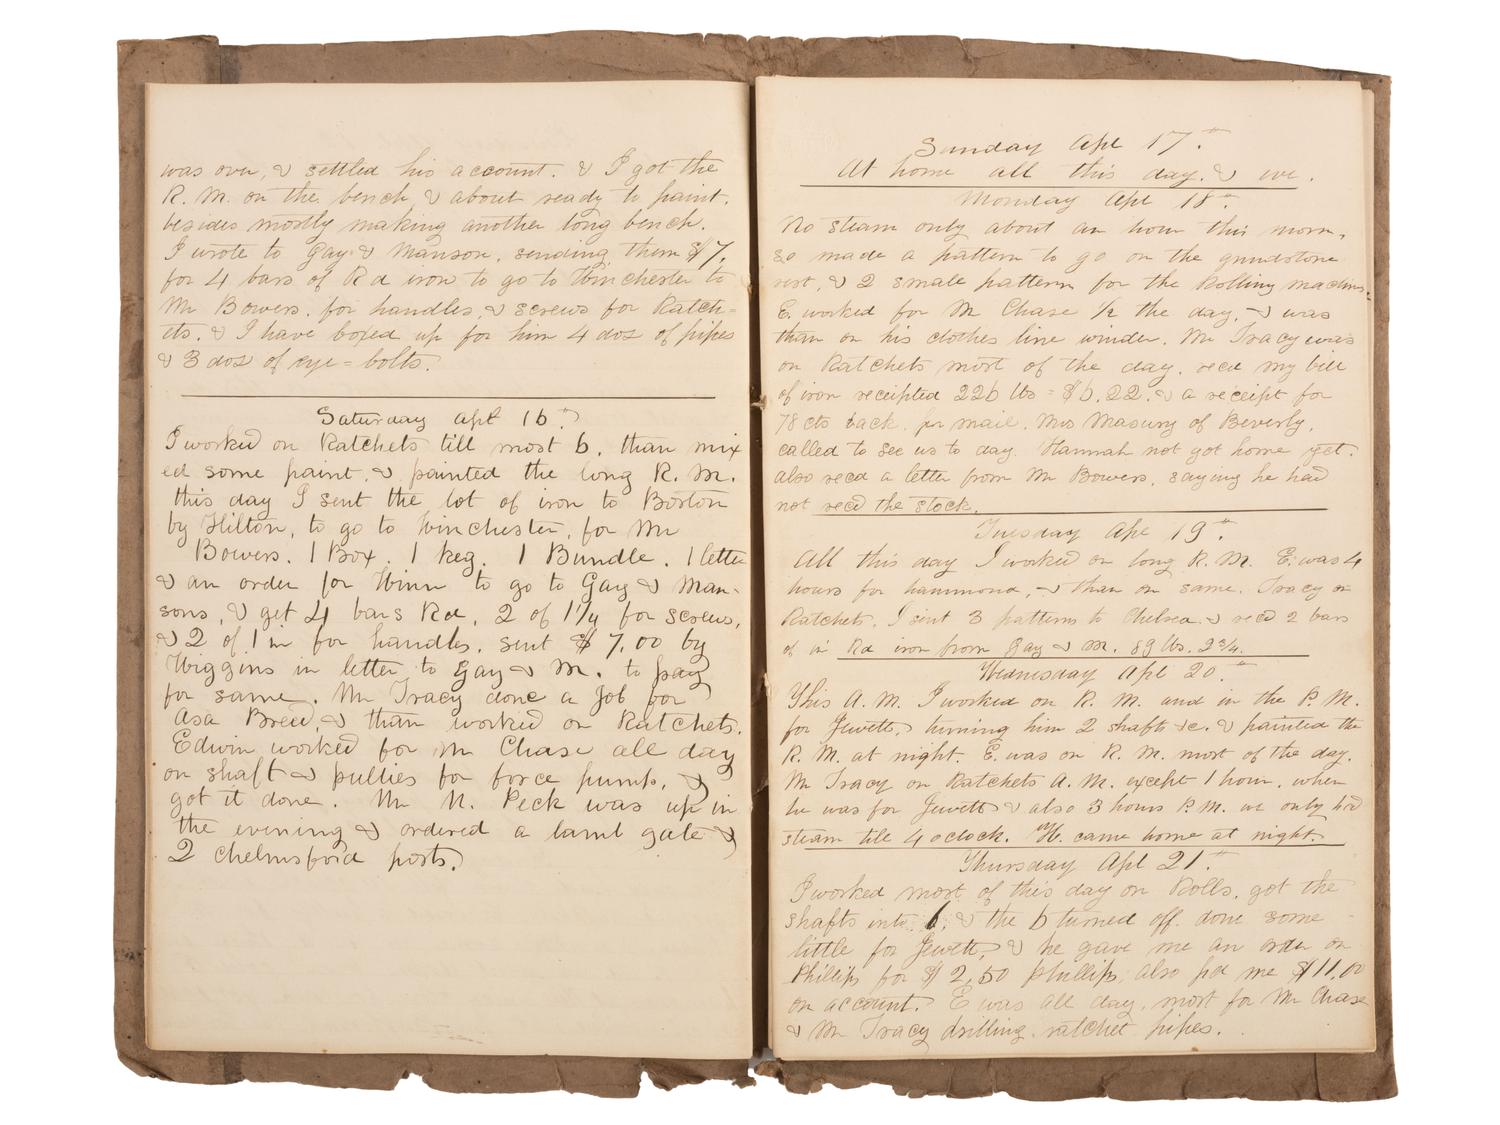 was over, & settled his account. & I got the
R. M. on the bench, & about ready to paint.
besides mostly making another long bench.
I wrote to Gay & Manson, sending them $7.
for 4 bars of Rd iron to go to Winchester to
Mr Bowers. for handles, & screws for Ratch=
ets. & I have boxed up for him 4 doz of pipes
& 3 doz of eye=bolts.
Saturday Apl 16th
I worked on Ratchets till most 6, than mix
ed some paint, & painted the long R. M.
this day I sent the lot of iron to Boston
by Hilton, to go to Winchester, for Mr
Bowers. 1 Box. 1 keg. 1 Bundle. 1 letter
& an order for Winn to go to Gay & Man-
sons, & get 4 bars Rd, 2 of 1 1/4 for screws,
& 2 of 1 in for handles. sent $7.00 by
Wiggins in letter to Gay & M. to pay
for same. Mr Tracy done a job for
Asa Breed, & than worked on Ratchets.
Edwin worked for Mr Chase all day
on shaft & pullies for force pump, &
got it done. Mr N. Peck was up in
the evening & ordered a lamb gate &
2 Chelmsford posts.
Sunday Apl 17th
At home all this day. & eve.
Monday Apl 18th
No steam only about an hour this morn,
so made a pattern to go on the grindstone
rest, & 2 small pattern for the Rolling machine.
E. worked for Mr Chase 1/2 the day, & was
than on his clothes line winder. Mr Tracy was
on Ratchets most of the day. recd my bill
of iron receipted 226 lbs = $6.22. & a receipt for
78 cts back. per mail. Mrs Masury of Beverly,
called to see us to day. Hannah not got home yet.
also recd a letter from Mr Bowers, saying he had
not recd the stock.
Tuesday Apl 19th
All this day I worked on long R. M. E. was 4
hours for hammond, & than on same. Tracy on
Ratchets. I sent 3 patterns to Chelsea. & recd 2 bars
of in Rd iron from Gay & M. 89 lbs. 2 3/4.
Wednesday Apl 20th
This A. M. I worked on R. M. and in the P. M.
for Jewett, turning him 2 shafts &c. & painted the
R. M. at night. E. was on R. M. most of the day.
Mr Tracy on Ratchets A. M. except 1 hour, when
he was for Jewett & also 3 hours P. M. we only had
steam till 4 oclock. H. came home at night.
Thursday Apl 21st
I worked most of this day on Rolls, got the
shafts into 6, & the 6 turned off. done some
little for Jewett, & he gave me an order on
Phillips for $2,50 phillips, also pd me $11,00
on account. E was all day, most for Mr Chase
& Mr Tracy drilling ratchet pipes.